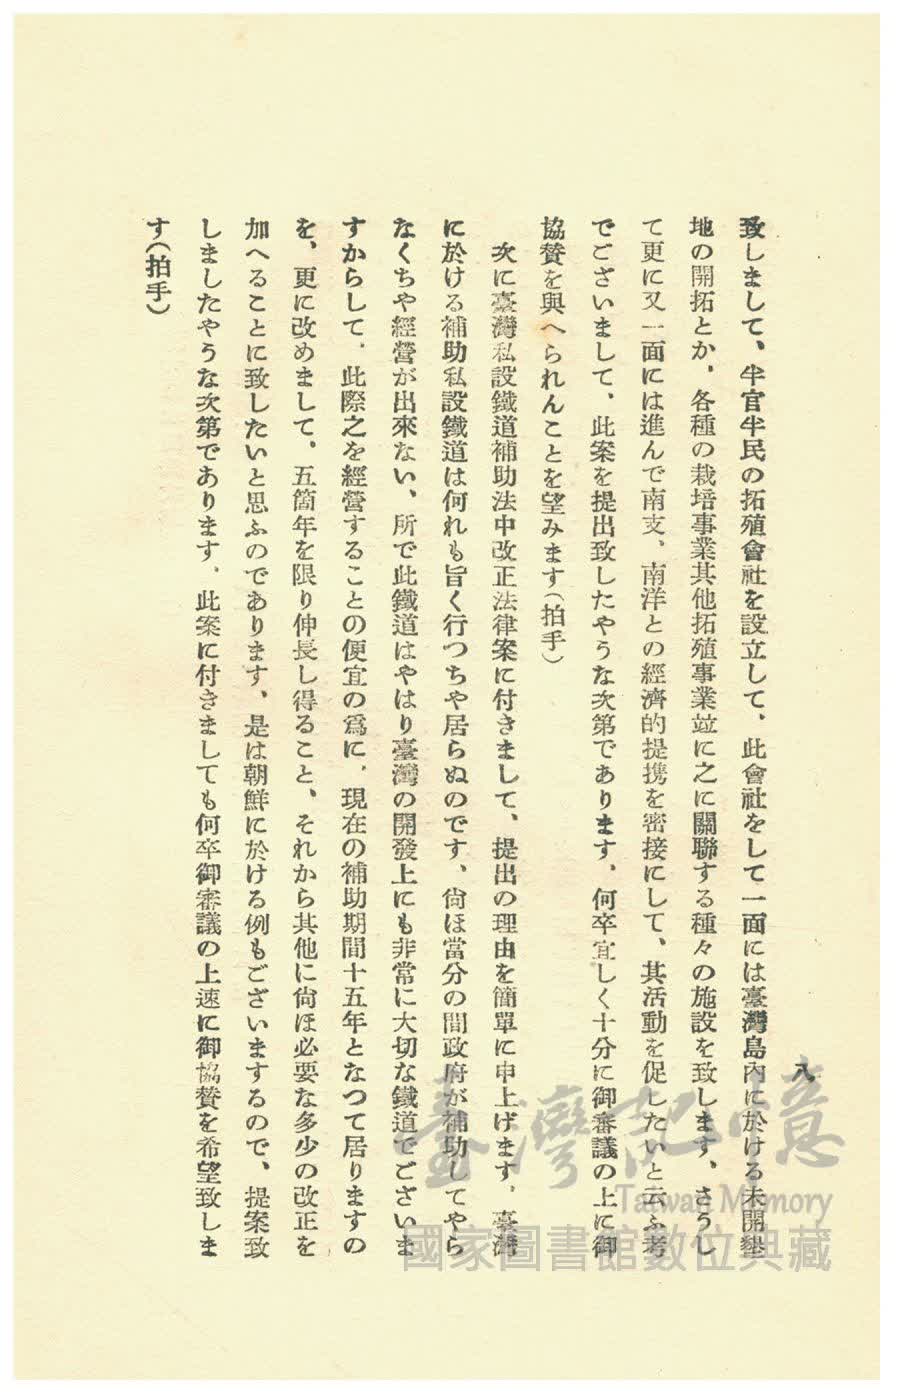 八
致しまして、半官半民の拓殖會社を設立して、此會社をして一面には臺灣島內に於ける未開墾
地の開拓とか、各種の栽培事業其他拓殖事業竝に之に關聯する種々の施設を致します、さうし
て更に又一面には進んで南支、南洋との經濟的提携を密接にして、其活動を促したいと云ふ考
でございまして、此案を提出致したやうな次第であります、何卒宜しく十分に御審議の上に御
協賛を與へられんことを望みます(拍手)
次に臺灣私設鐵道補助法中改正法律案に付きまして、提出の理由を簡單に申上げます、臺灣
に於ける補助私設鐵道は何れも旨く行つちや居らぬのです、尙ほ當分の間政府が補助してやら
なくちや經營が出來ない、所で此鐵道はやはり臺灣の開發上にも非常に大切な鐵道でございま
すからして、此際之を經營することの便宜の爲に、現在の補助期間十五年となつて居りますの
を、更に改めまして、五箇年を限り伸長し得ること、それから其他に尙ほ必要な多少の改正を
加へることに致したいと思ふのであります、是は朝鮮に於ける例もございまするので、提案致
しましたやうな次第であります、此案に付きましても何卒御審議の上速に御協賛を希望致しま
す(拍手)
臺灣記憶
Taiwan Memory
國家圖書館數位典藏